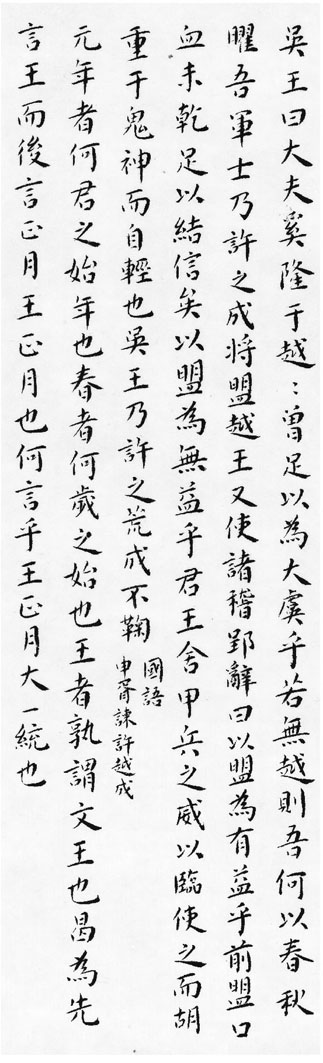 吳王曰大夫奚隆于越〻曾足以為大虞乎若無越則吾何以春秋
曜吾軍士乃許之成將盟越王又使諸稽郢辭曰以盟為有益乎前盟口
血未乾足以結信矣以盟為無益乎君王舍甲兵之威以臨使之而胡
重于鬼神而自輕也吳王乃許之荒成不鞠
國語
申胥諫許越成
元年者何君之始年也春者何歲之始也王者孰謂文王也曷為先
言王而後言正月王正月也何言乎王正月大一統也